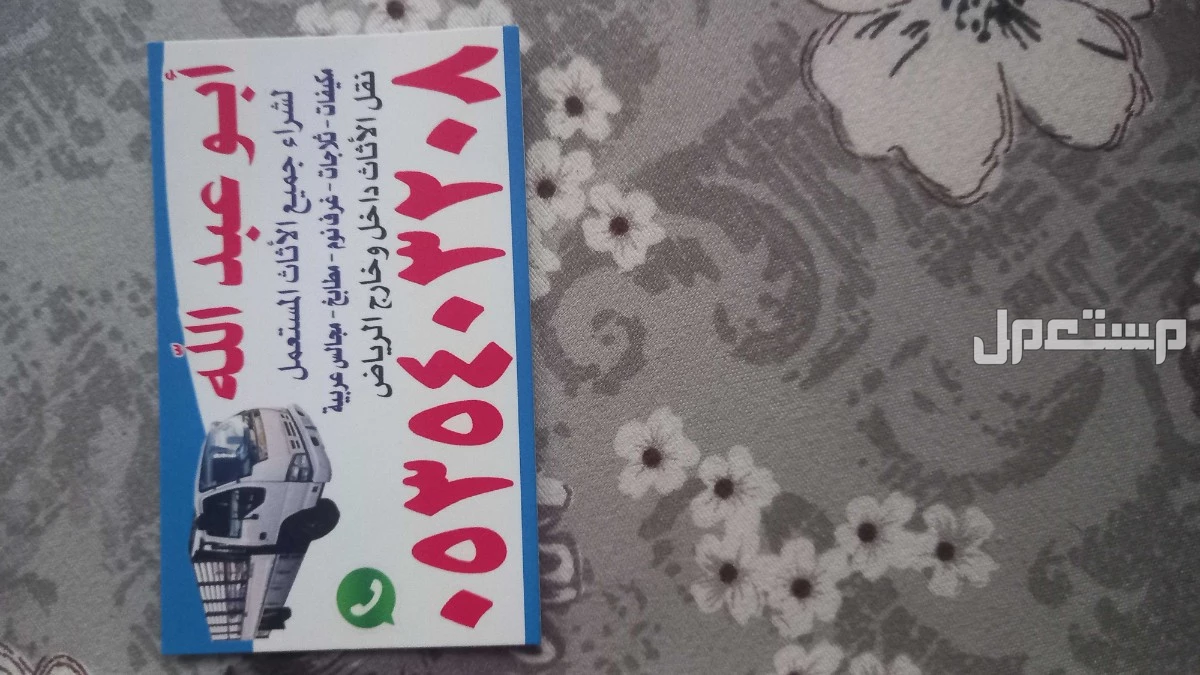 أبو عبد الله
لشراء جميع الأثاث المستعمل
مكيفات - ثلاجات - غرف نوم - مطابخ - مجالس عربية
نقل الأثاث داخل وخارج الرياض
٠٥٣٥٤٠٣٢٠٨
مستعمل